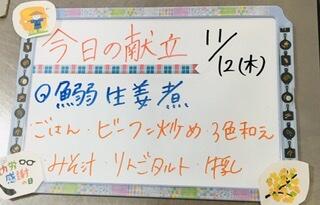 今日の献立 11/12(木)
◎鰯生姜煮
・ごはん・ビーフン炒め・3色和え
・みそ汁・りんごタルト・牛乳
勤労
感謝
の日